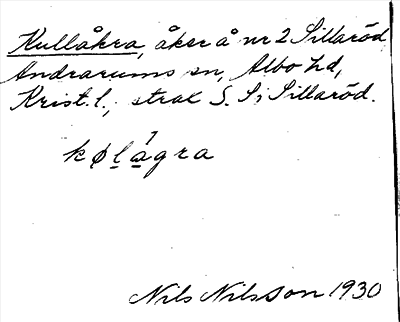 Kullåkra, åker å nr 2 Sillaröd
Andrarums sn, Albo hd,
Krist. l., strax S. S; Sillaröd.
kølagra
Nils Nilsson 1930